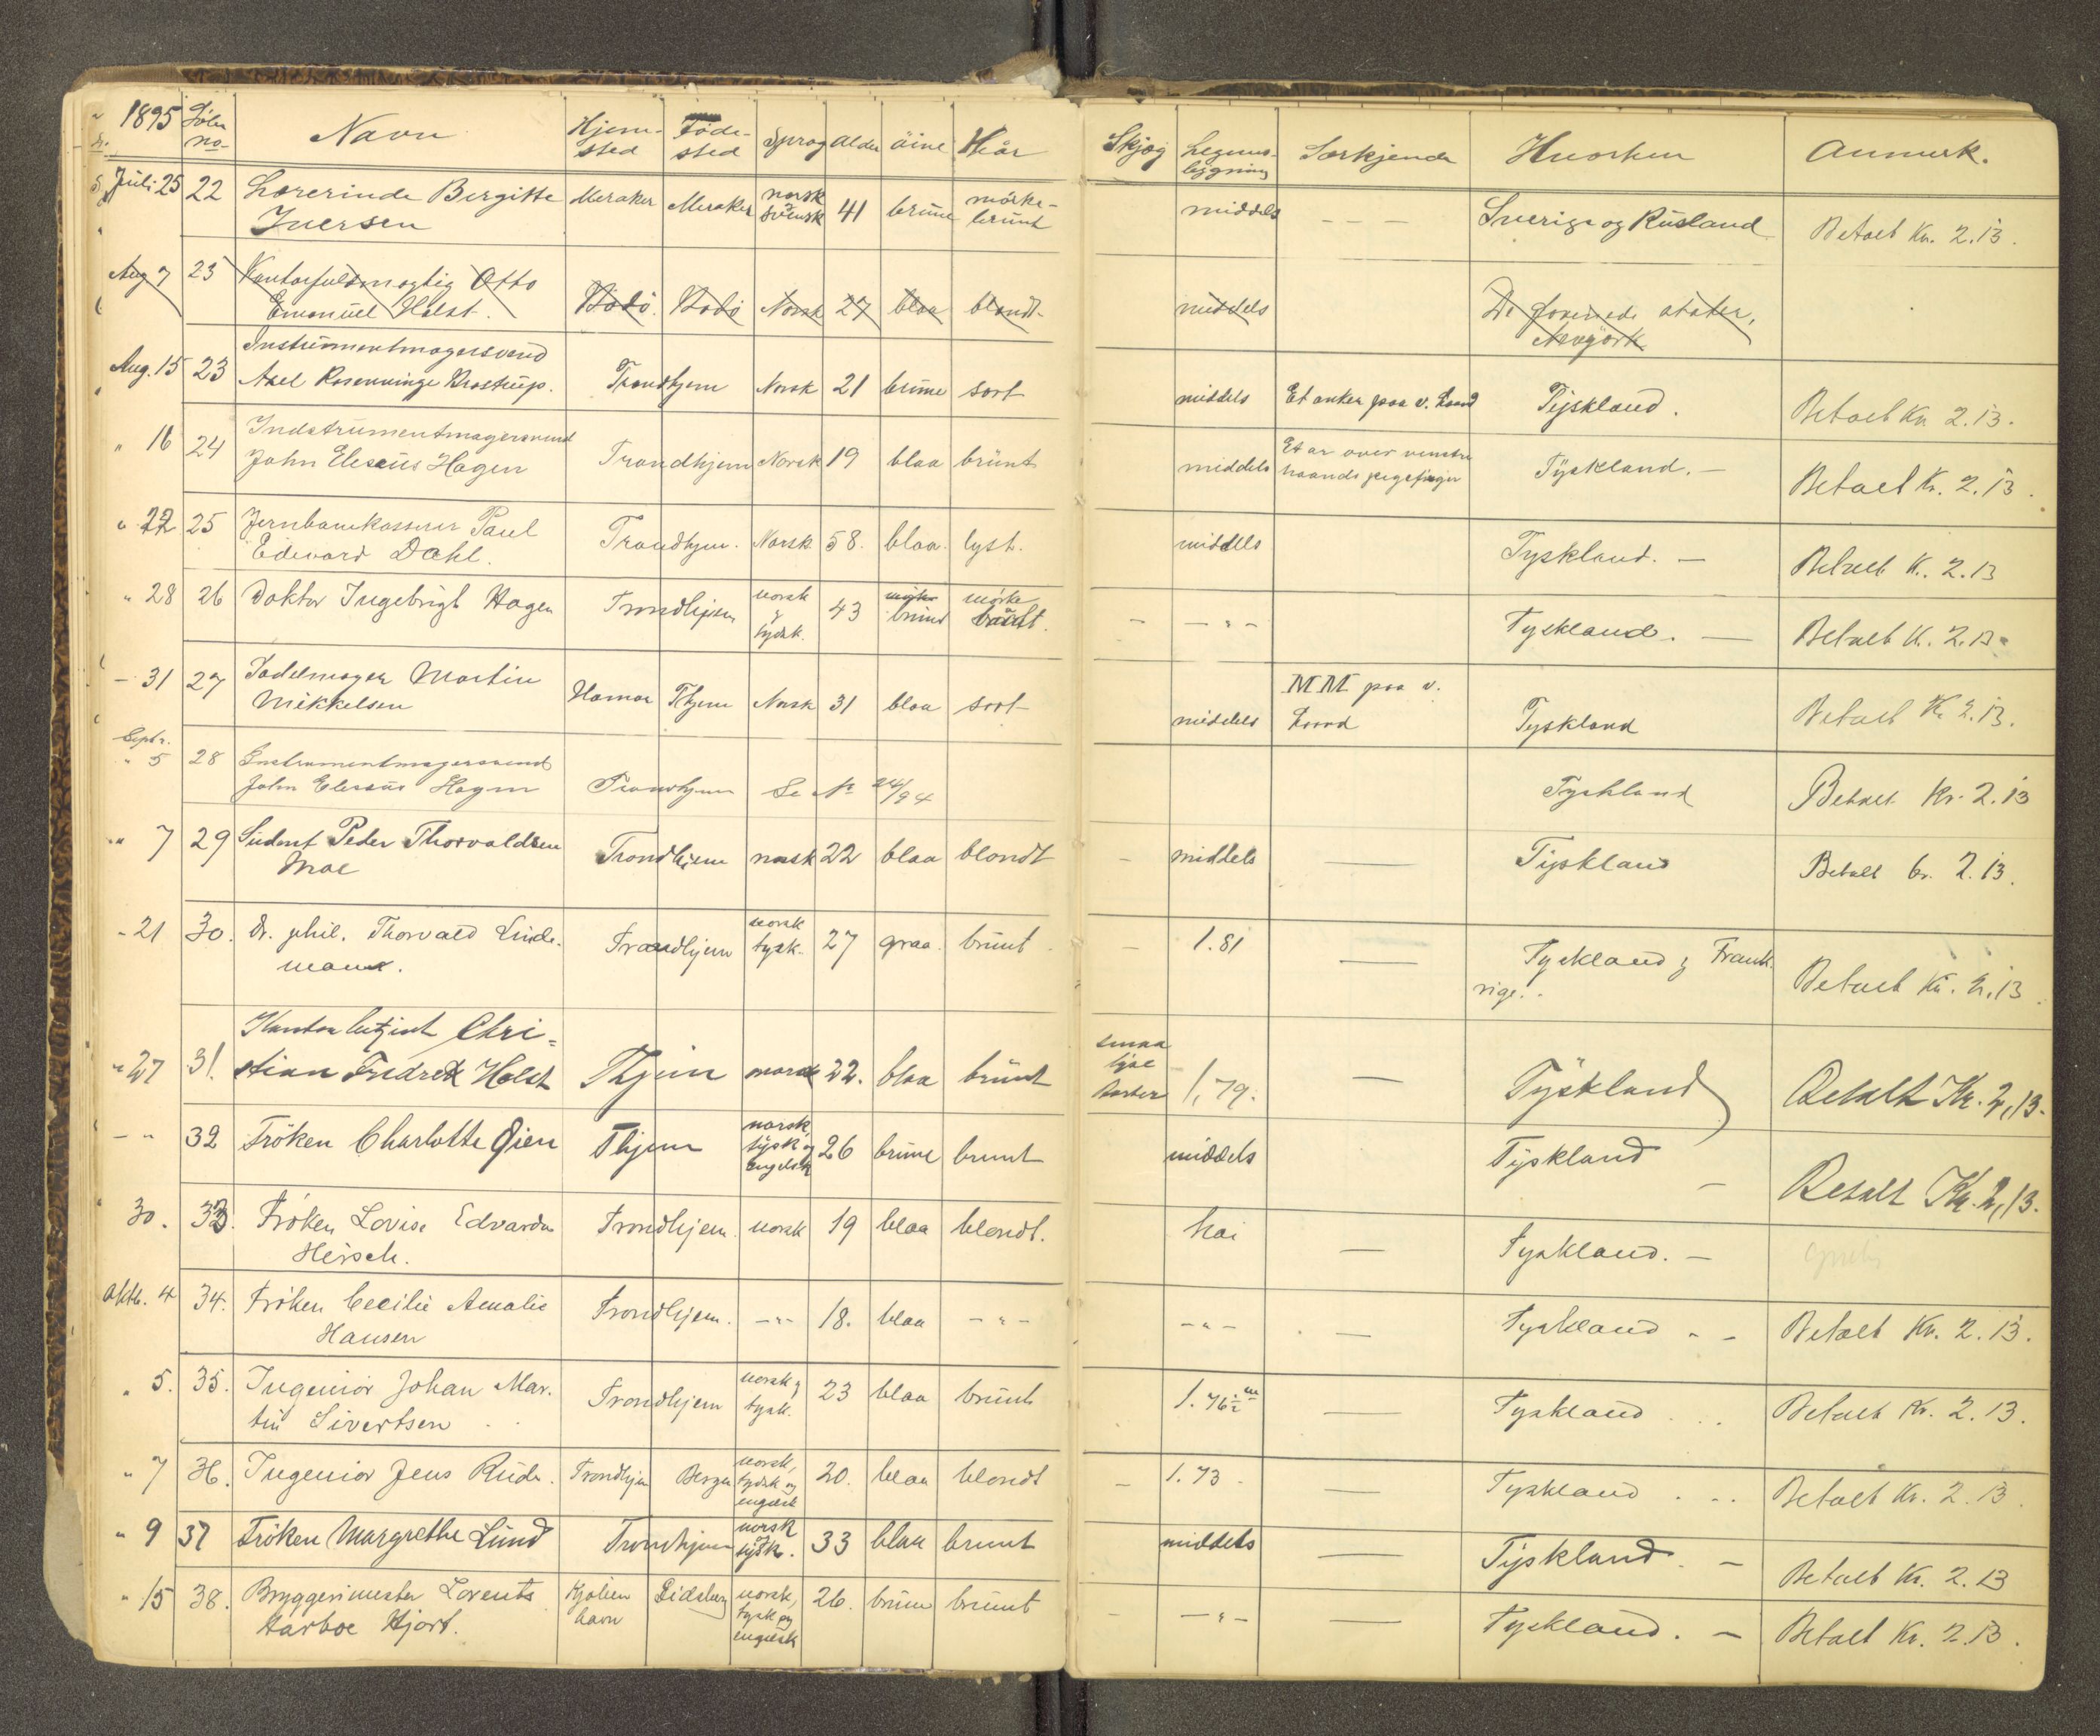 1895 Löbe no Navn Hjem-sted Föde-sted Sprog Alder öine Hår Skjæg Legems-bygning Særkjende Hvorhen Anmerk.
Juli 25 22 Lærerinde Bergitte Meraker Meraker norsk svensk 41 brune mörke- middels - - - Sverige og Rusland Betalt Kr. 2.13.
Iversen brunt
Aug 7 23 Kontorfuldmægtig Otto
Emanuel Holst. Bodö. Bodö Norsk 27 blaa blondt- middels De forenede stater,
Newyörk
Instrumentmagersvend
Aug. 15 23 Axel Rosenvinge Brostrup. Trondhjem Norsk 21 brune sort middels Et anker paa v. Haand Tyskland. Betalt Kr 2.13.
Indstrumentmagersvend Et ar over venstre
" 16 24 John Eleseus Hagen Trondhjem Norsk 19 blaa brünt middels haands pegefinger Tyskland. - Betalt Kr. 2.13.
" 22 25 Jernbanekasserer Paul
Edevard Dahl. Trondhjem. Norsk 58. blaa. lyst. middels Tyskland. - Betalt K. 2.13
" 28 26 Doktor Ingebrigt Hagen Trondhjem norsk & tydsk. 43 brune mörke brunt. - - " - Tyskland. - Betalt K. 2.13
- 31 27 Sadelmager Martin MM paa v.
Mikkelsen Hamar Thjem Norsk 31 blaa sort middels Haand Tyskland Betalt Kr 2.13.
Septr.
" 5 28 Instrumentmagersvend
John Eleseus Hagen Trondhjem Se No 24/94 Tyskland Betalt Kr. 2.13
" 7 29 Student Peder Thorvaldsen
Moe Trondhjem norsk 22 blaa blondt - middels — Tyskland Betalt kr. 2.13.
- 21 30. Dr. phil. Thorvald Linde-
mann. Trondhjem norsk tysk. 27 graa. brunt. - 1.81 — Tyskland & Frank-
rige. Betalt Kr. 2.13.
Chri-
" 27 31. stian Fredrik Holst Thjem norsk 22. blaa brünt smaa lyse Barter 1,79. — Tyskland Betalt Kr. 2,13.
- " 32 Fröken Charlotte Öien Thjem norsk, tysk og engelsk 26 brune brunt middels Tyskland - Betalt Kr. 2,13.
" 30. 33. Fröken Lovise Edvarda
Hirsch. Trondhjem. norsk 19 blaa blondt. høi — Tyskland. -
Oktb. 4 34. Fröken Cecilie Amalie
Hansen Trondhjem. - " - 18. blaa - " - - " - — Tyskland - - Betalt Kr. 2.13.
" 5. 35. Ingeniör Johan Mar-
tin Sivertsen Trondhjem norsk & tysk. 23 blaa brunt 1.76½ m — Tyskland Betalt Kr. 2.13.
" 7 36. Ingeniör Jens Rude. Trondhjem Bergen norsk, tydsk og engelsk 20. blaa blondt - 1.73 - — Tyskland Betalt Kr. 2.13.
" 9 37 Fröken Margrethe Lund Trondhjem norsk og tysk. 33 blaa brunt middels — Tyskland. - Betalt Kr. 2.13
" 15 38. Bryggerimester Lorents
Harboe Hjort. Kjöben havn Eidsberg norsk, tysk og engelsk 26. brune brunt - - " - — Tyskland. - Betalt Kr. 2.13.